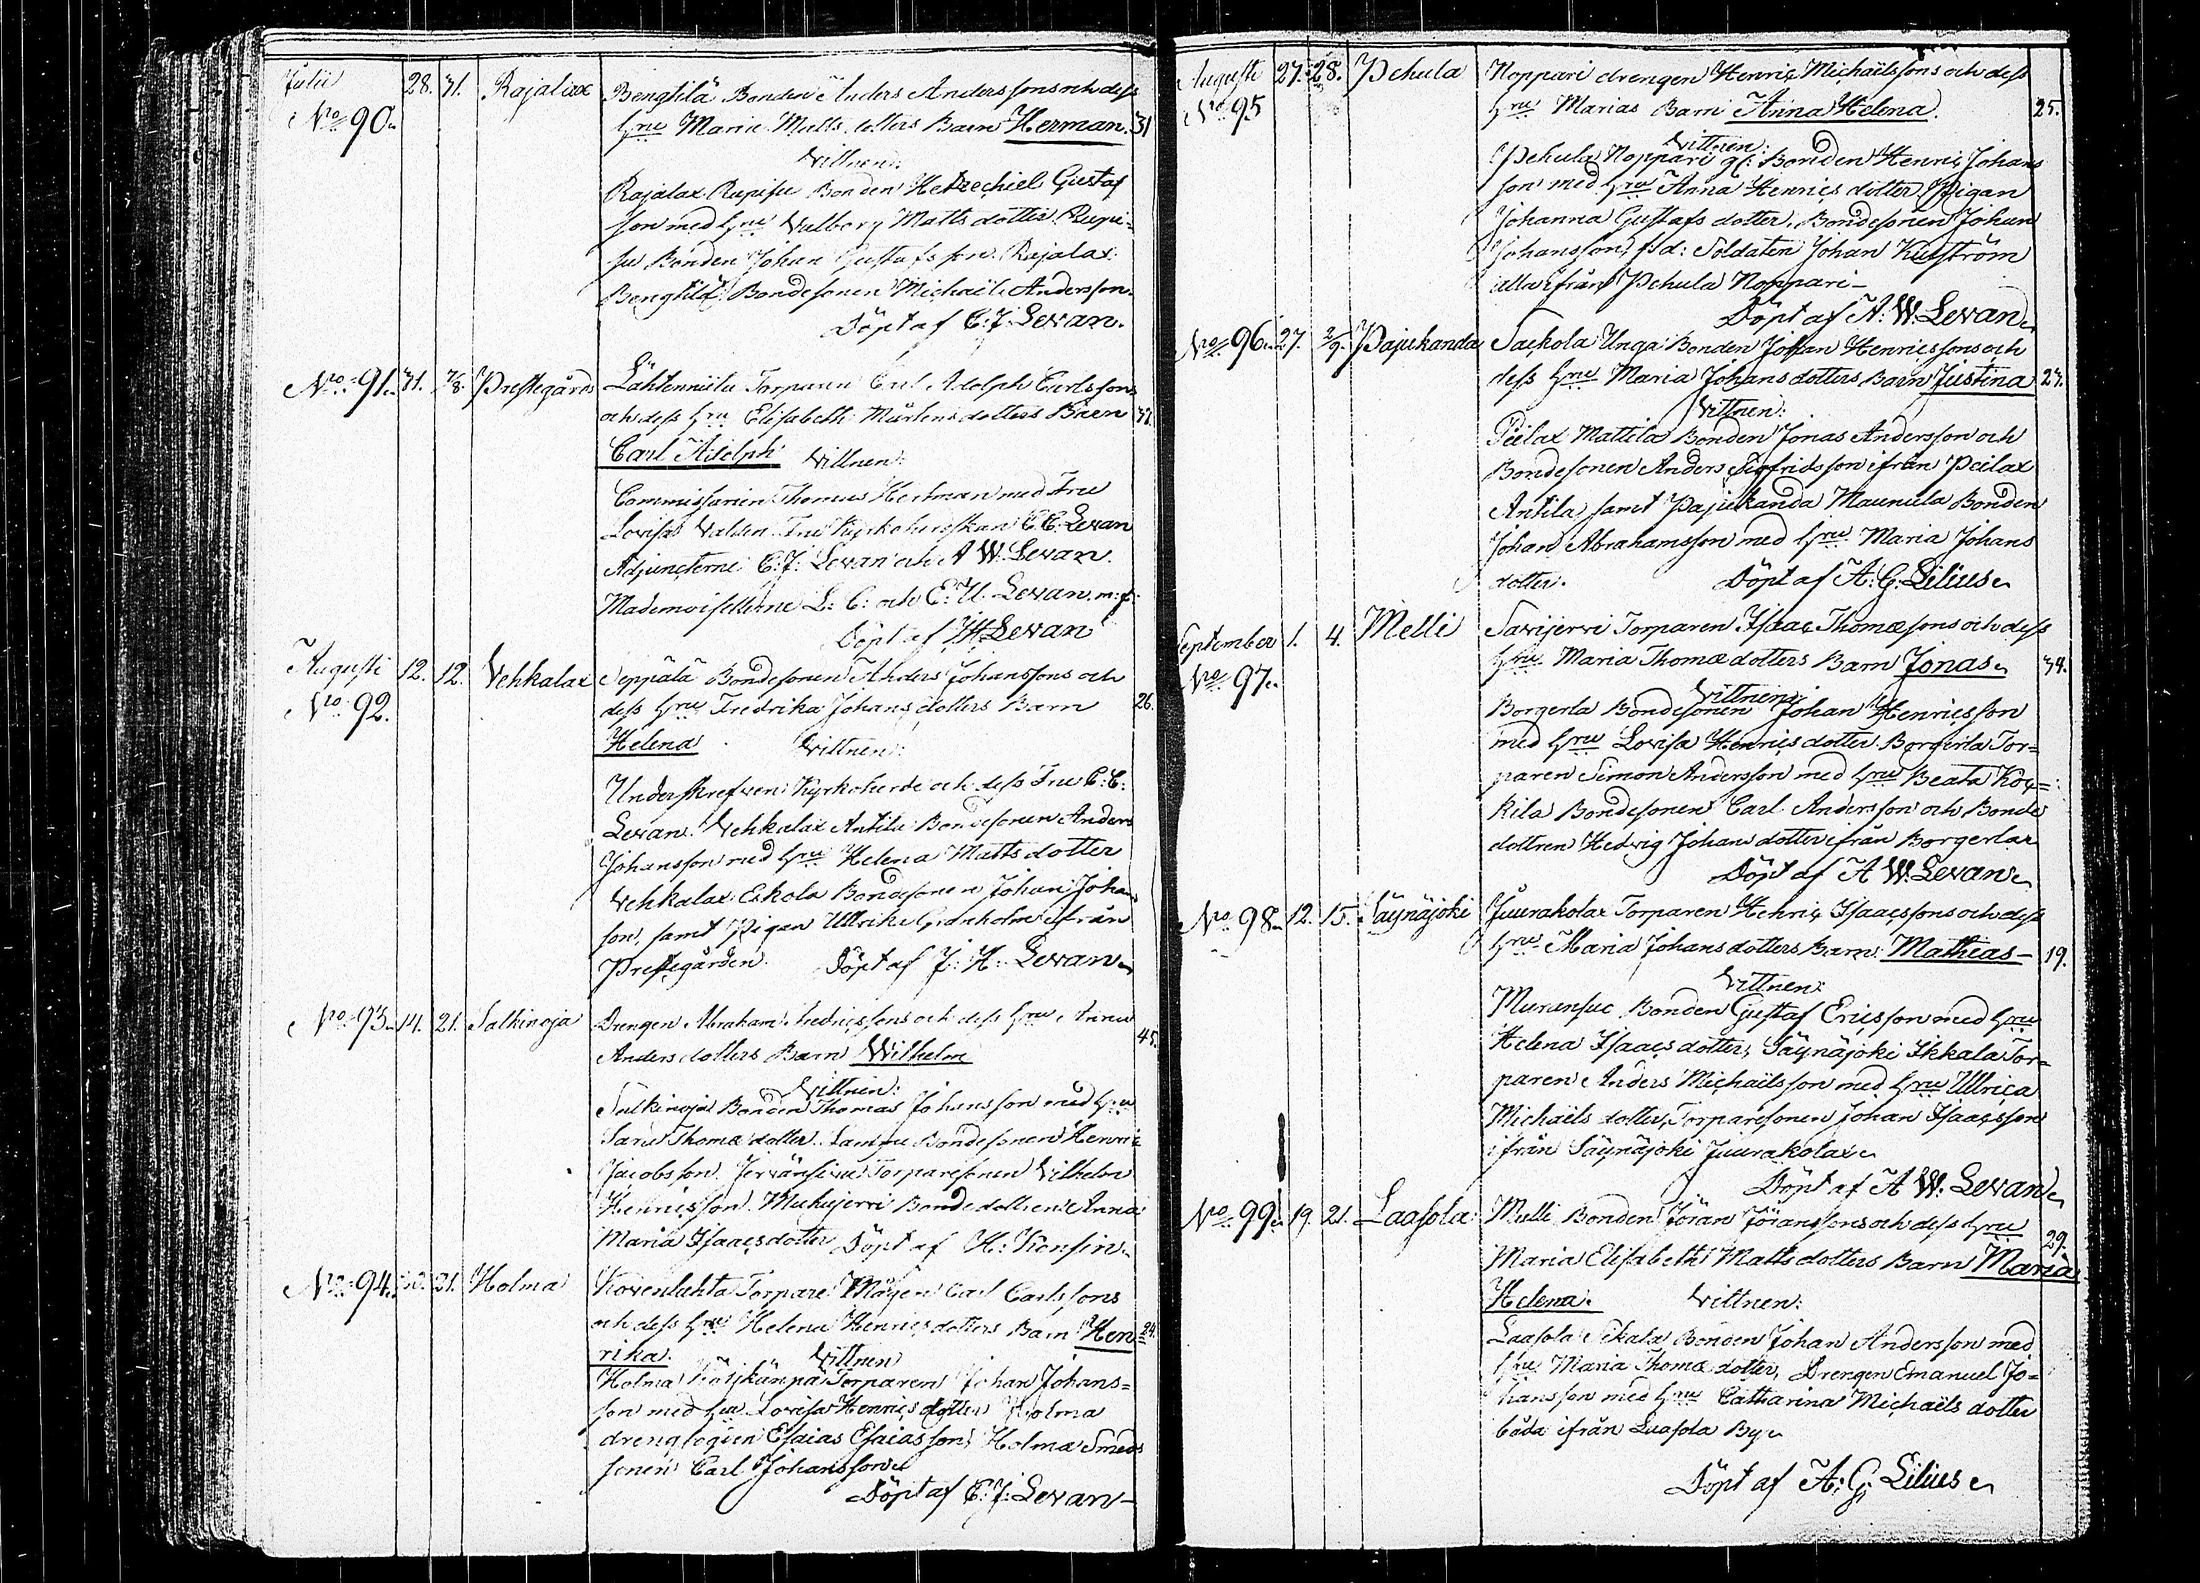 Julii 28. 31. Rajalax Bengtilä Bonden Anders Anderssons och dess
No 90. hru Maria Matts dotters Barn Herman. 31
Vittnen:
Rajalax Rupisu Bonden Hetzechiel Gustaf
son med hru Valborg Matts dotter Rupi=
su Bonden Johan Gustafsson. Rajalax
Bengtilä Bondesonen Michaël Andersson.
Döpt af C: J: Levan.
No 91. 31. 7/8. Prestegård Lähtenniitu Torparen Carl Adolph Carlssons
och dess hru Elisabeth Mårtens dotters Barn 31.
Carl Adolph Vittnen:
Commissarien Thomas Hertman med Fru
Lovisa Fru Kyrkoherskan C C: Levan
Adjuncterne C: J: Levan och A W: Levan.
Mademoisellerne L: C: och E: U: Levan. m: f:
Döpt af J H: Levan
Augusti 12. 12. Vehkalax Seppälä Bondesonen Anders Johanssons och
No 92. dess hru Fredrika Johans dotters Barn 26.
Helena Vittnen:
Underskrefven Kyrkoherde och dess Fru C: C:
Levan. Vehkalax Antila Bondesonen Anders
Johansson med hru Helena Matts dotter
Vehkalax Eskola Bondesonen Johan Johans
son, samt Pigan Ullrika Granholm ifrån
Prestegården. Döpt af J: H: Levan
No 93. 14. 21. Salkinoja Drengen Abraham Fredricssons och dess hru Anna
Anders dotters Barn Wilhelm 45.
Vittnen:
Salkinoja Bonden Thomas Johansson med hru
Sara Thomæ dotter. Bondesonen Henric
Jacobsson. Torparesonen Vilhelm
Henricsson. Mukujerri Bonde dottren Anna
Maria Isaacs dotter Döpt af H: Konsin.
No 94. 20. 21. Holma Kovenlahta Torpare Mågen Carl Carlssons
och dess hru Helena Henrics dotters Barn Hen 24.
rika. Vittnen
Holma Torparen Johan Johans=
son med hru Lovisa Henrics dotter Holma
drenglogien Esaias Esaiasson, Holma Smeds
sonen Carl Johansson
Döpt af C: J: Levan
Augusti 27. 28. Pehula Noppari drengen Henric Michaëlssons och dess
No 95 hru Marias Barn Anna Helena. 25.
Vittnen:
Pehula Noppari gl: Bonden Henric Johans
son med hru Anna Henrics dotter Pigan
Johanna Gustafs dotter. Bondesonen Johan
Johansson, fsd: Soldaten Johan Kulström
alla ifrån Pehula Noppari
Döpt af A: W: Levan
No 96. 27. 2/9. Pajukanda Sackola Unga Bonden Johan Henricssons och
dess hru Maria Johans dotters Barn Justina 27.
Vittnen:
Peilax Mattila Bonden Jonas Andersson och
Bondesonen Anders Sigfridsson ifrån Peilax
Antila samt Pajukanda Maunula Bonden
Johan Abrahamsson med hru Maria Johans
dotter. Döpt af A: G: Lilius
September 1. 4. Melli Savijervi Torparen Isaac Thomæsons och dess
No 97. hru Maria Thomæ dotters Barn Jonas. 34.
Vittnen:
Borgerla Bondesonen Johan Henricsson
med hru Lovisa Henrics dotter. Borgerla Tor=
paren Simon Andersson med hru Beata Koc=
kila Bondesonen Carl Andersson och Bonde
dottren Hedvig Johans dotter ifrån Borgerla
Döpt af A W: Levan
No 98. 12. 15. Säynäjoki Juurakolax Torparen Henric Isaacssons och dess
hru Maria Johans dotters Barn Mathias 19.
Vittnen:
Muransuc Bonden Gustaf Ericsson med hru
Helena Isaacs dotter, Säynäjoki Ikkala Tor=
paren Anders Michaëlsson med hru Ullrica
Michaëls dotter, Torparesonen Johan Isaacsson
ifrån Säynäjoki Juurakolax
Döpt af A W: Levan
No 99. 19. 21. Laasola Mulli Bonden Jöran Jöranssons och dess hru
Maria Elisabeth Matts dotters Barn Maria 29.
Helena. Vittnen:
Laasola Sikala Bonden Johan Andersson med
hru Maria Thomæ dotter, Drengen Emanuel Jo=
hansson med hru Catharina Michaëls dotter
båda ifrån Laasola By
Döpt af A: G: Lilius